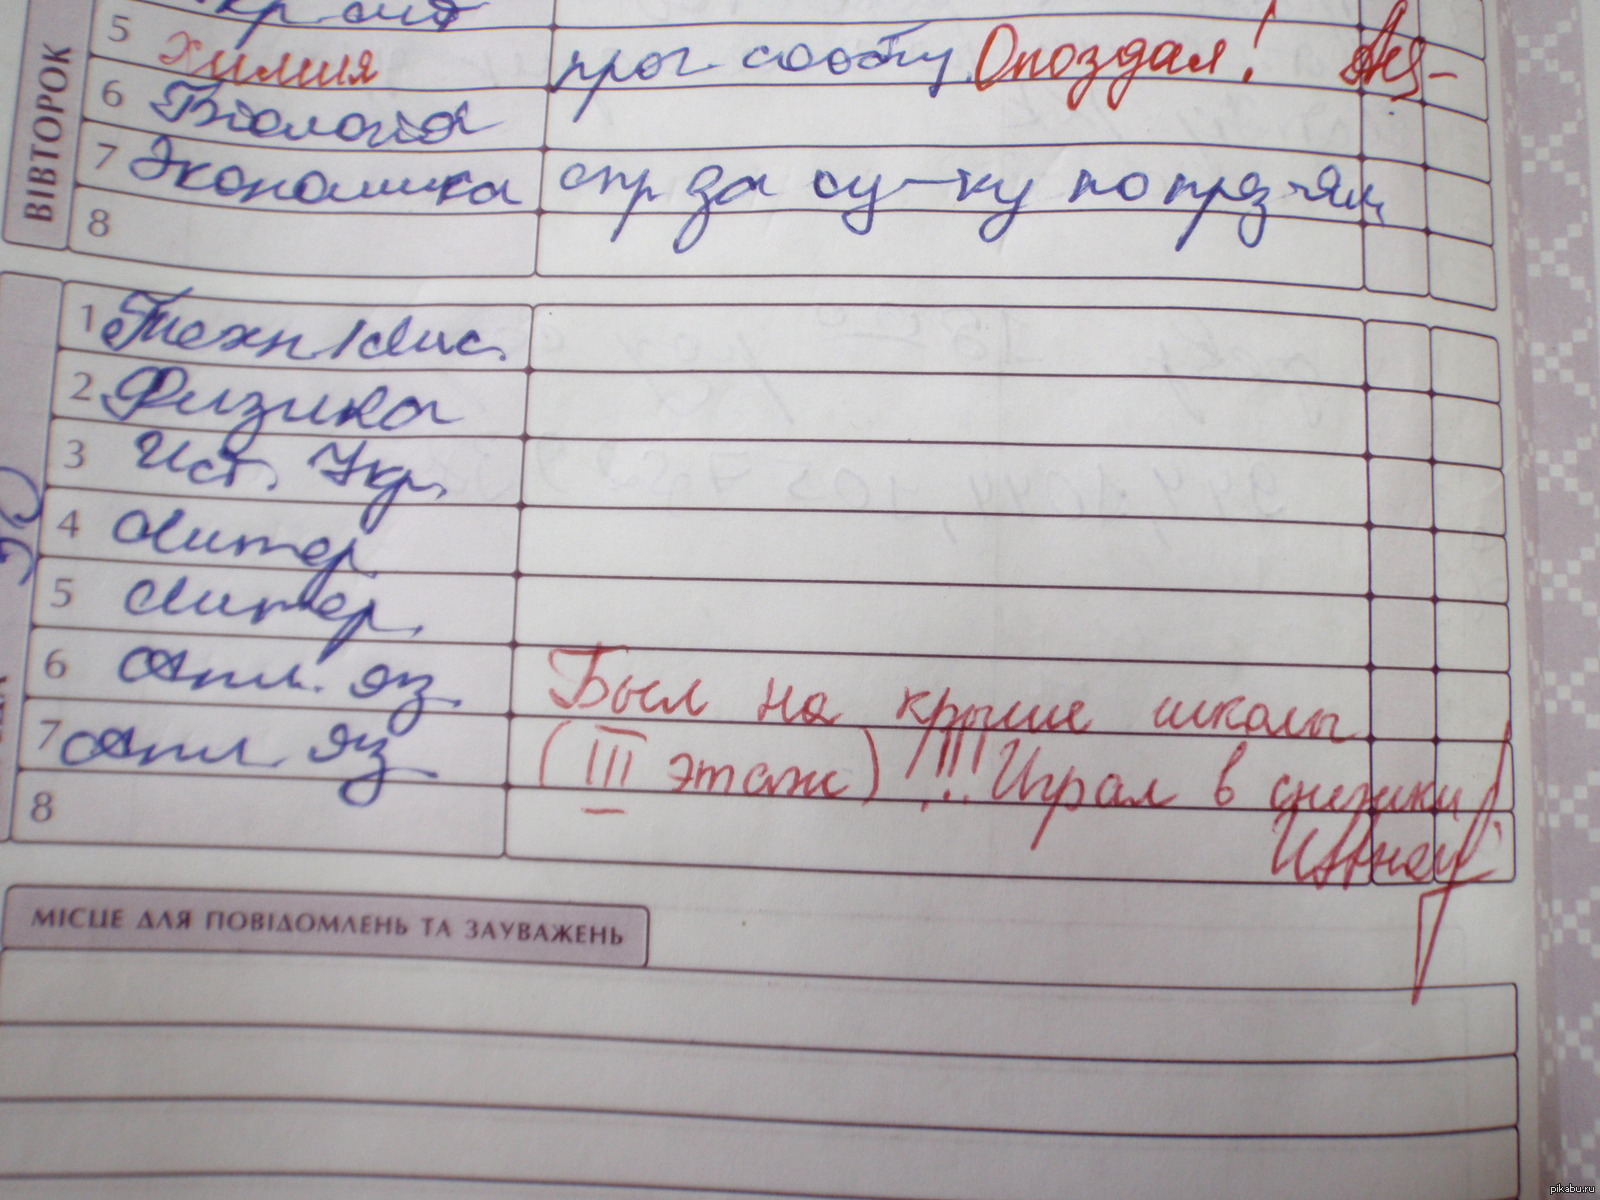 ВІВТОРОК
5 Химия прог. сообщ Опоздал!
6 Біологія
7 Экономика спр за су-ку по
8
1 Техн/
2 Физика
3 Ист. Укр.
4 Литер
5 Литер.
6 Англ. яз.
7 Англ. яз
Был на крыше школы
(III этаж)!!! Играл в снежки!
8
МІСЦЕ ДЛЯ ПОВІДОМЛЕНЬ ТА ЗАУВАЖЕНЬ
pikabu.ru